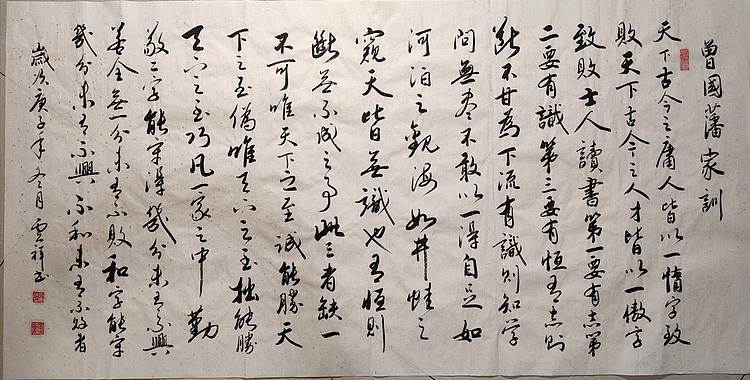 曾國藩家訓
天下古今之庸人皆以一惰字致
敗天下古今之人才皆以一傲字
致敗士人讀書第一要有志第
二要有識第三要有恒有志則
斷不甘為下流有識則知學
問無盡不敢以一得自足如
河泊之觀海如井蛙之
窺天皆無識也有恒則
斷無不成之事此三者缺一
不可唯天下之至誠能勝天
下之至偽唯天下之至拙能勝
天下之至巧凡一家之中勤
敬二字能守得幾分未有不興
若全無一分未有不敗和字能守
幾分未有不興不和未有不敗者
歲次庚子年冬月雲祥書